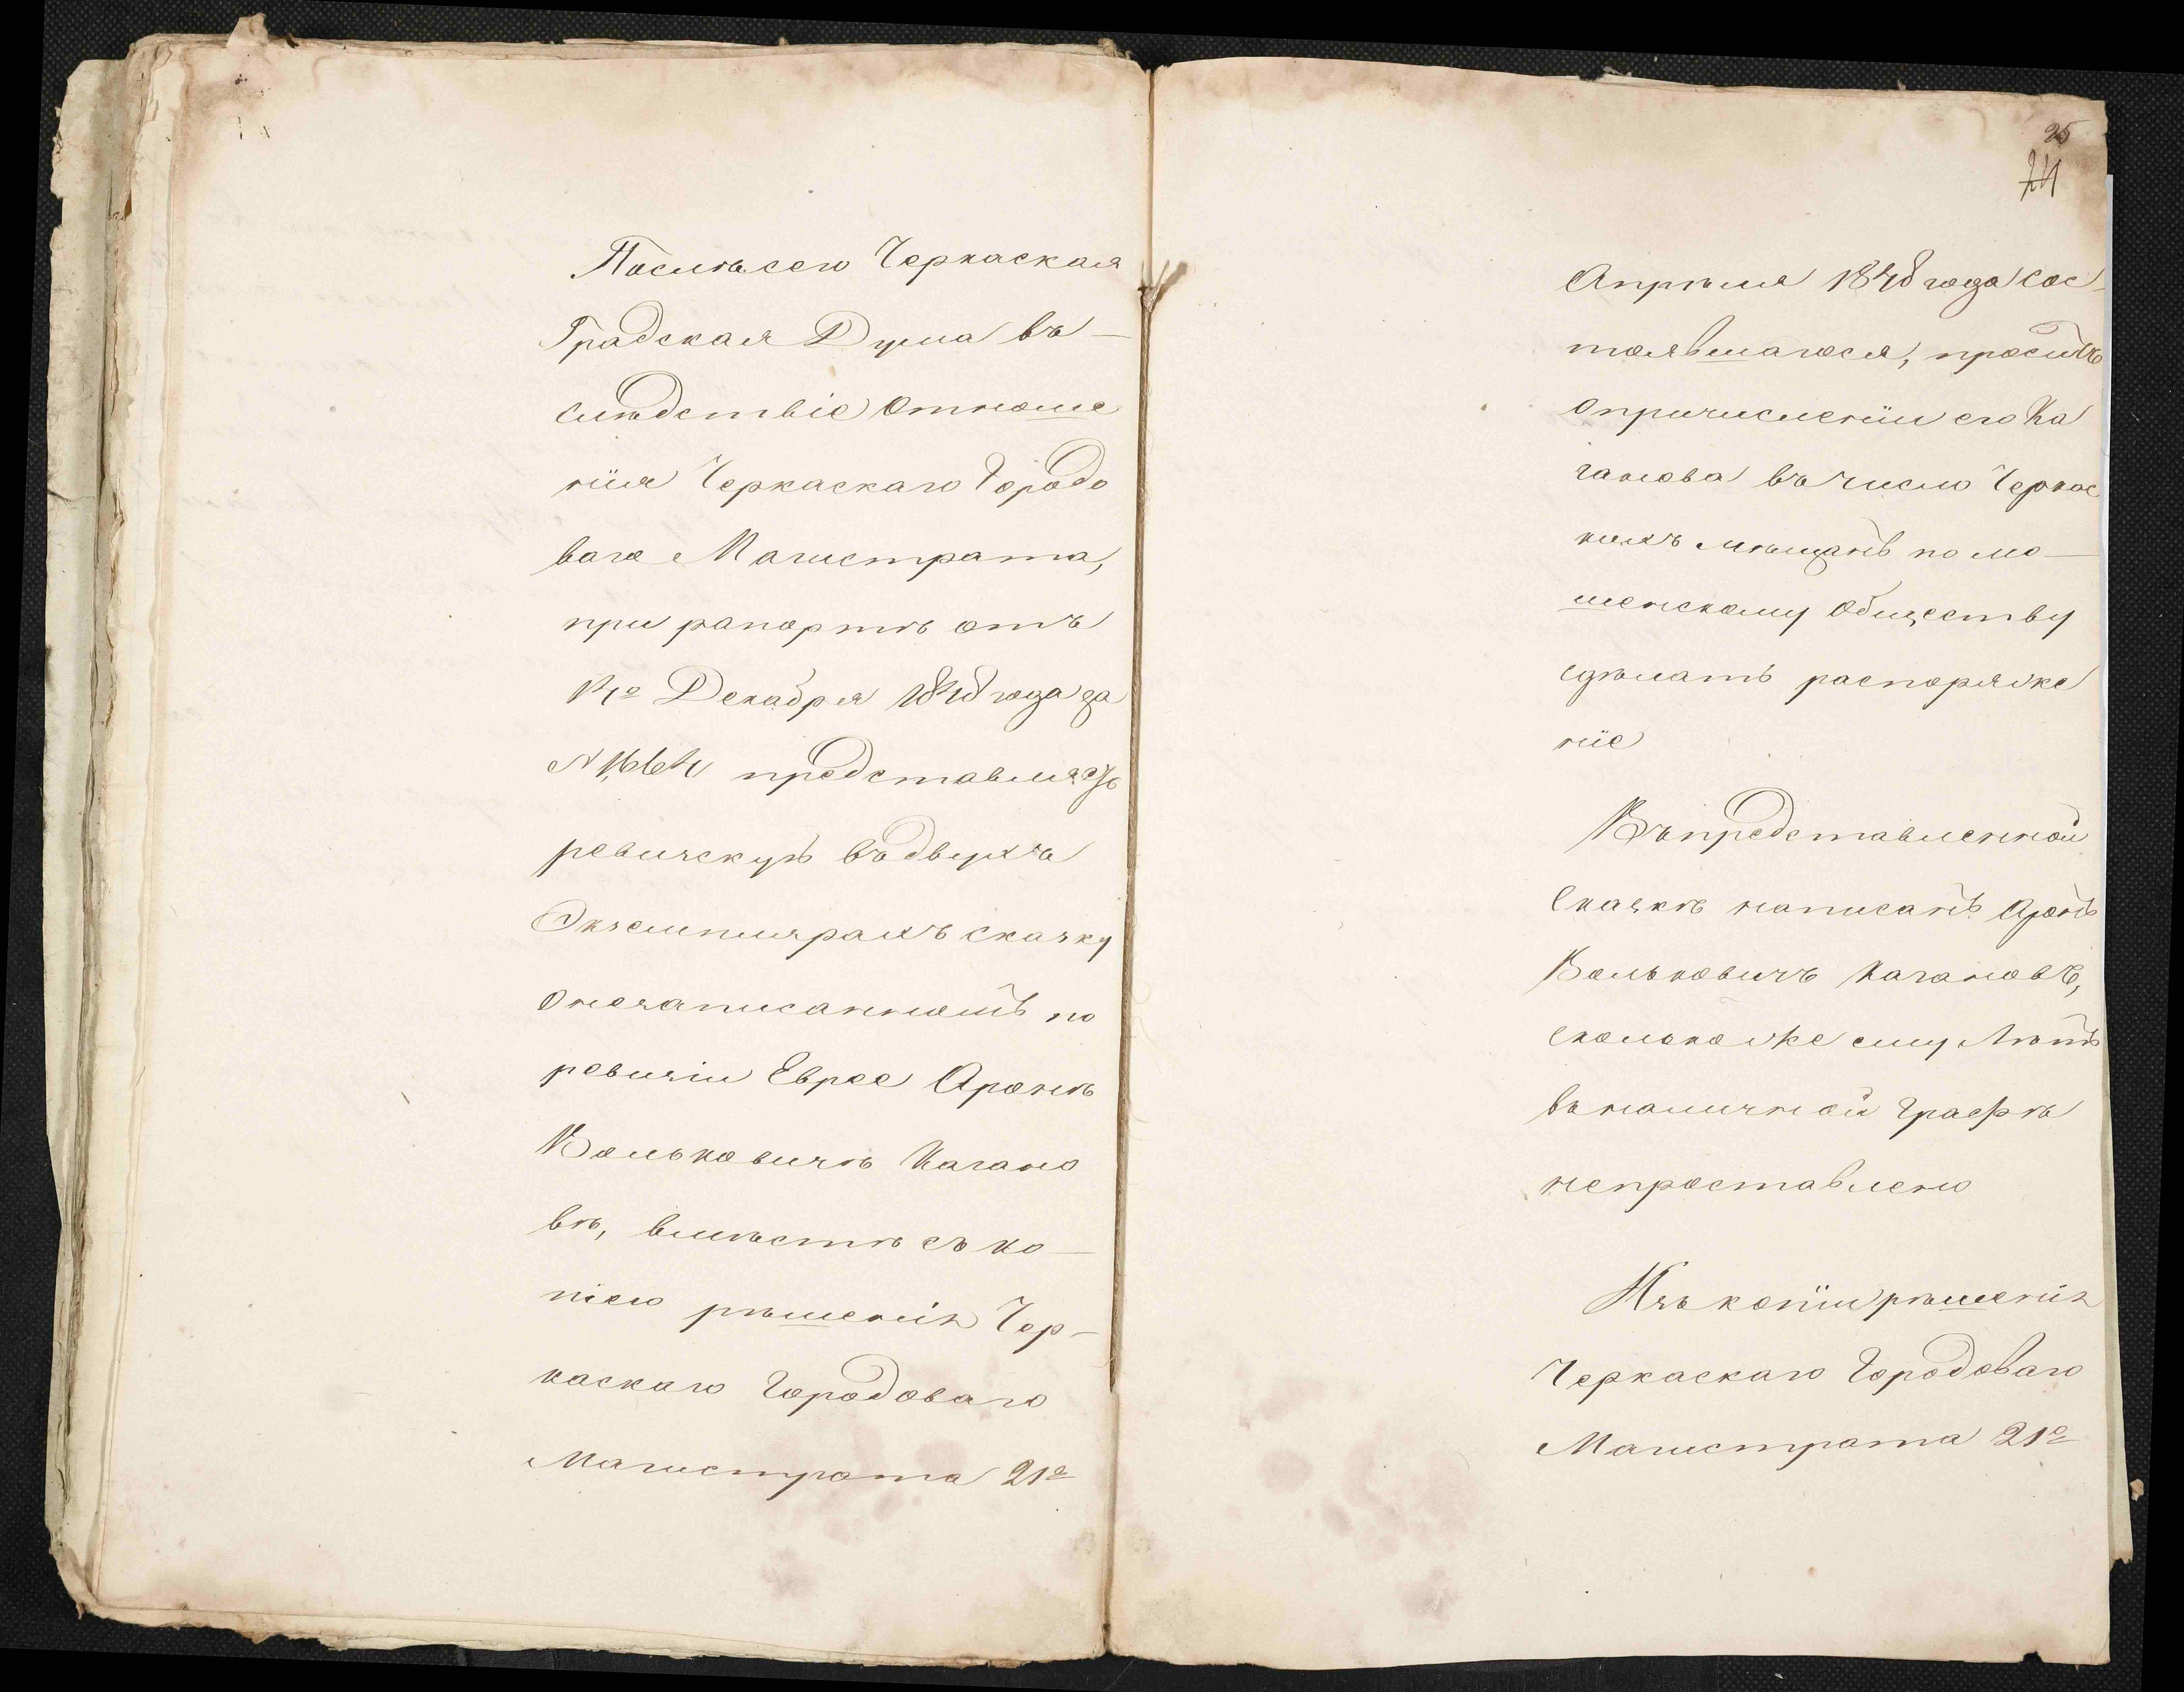 Послѣ сего Черкаская
Градская Дума въ —
слѣдствіе Отноше
нія Черкаскаго Городо
ваго Магистрата,
при рапортѣ отъ
14º Декабря 1848 года за
N представляетъ
ревизскую въ двухъ
Экземплярахъ сказку
о незаписанномъ по
ревизіи Еврее Аронѣ
Вольковичѣ Кагано
вѣ, вмѣстѣ съ ко —
піею рѣшенія Чер —
каскаго Городоваго
Магистрата 21º
25
24
Апрѣля 1848 года сос —
тоявшагося, проситъ
о причисленіи его Ка
ганова въ число Черкас
кихъ мѣщанъ по мо —
шенскому Обществу
сдѣлать распоряже
ніе
Въ представленной
Сказкѣ написанъ Аронъ
Вольковичъ Кагановъ,
сколько же ему Лѣтъ
въ наличной графѣ
непроставлено
Изъ копіи рѣшенія
Черкаскаго Городоваго
Магистрата 21º